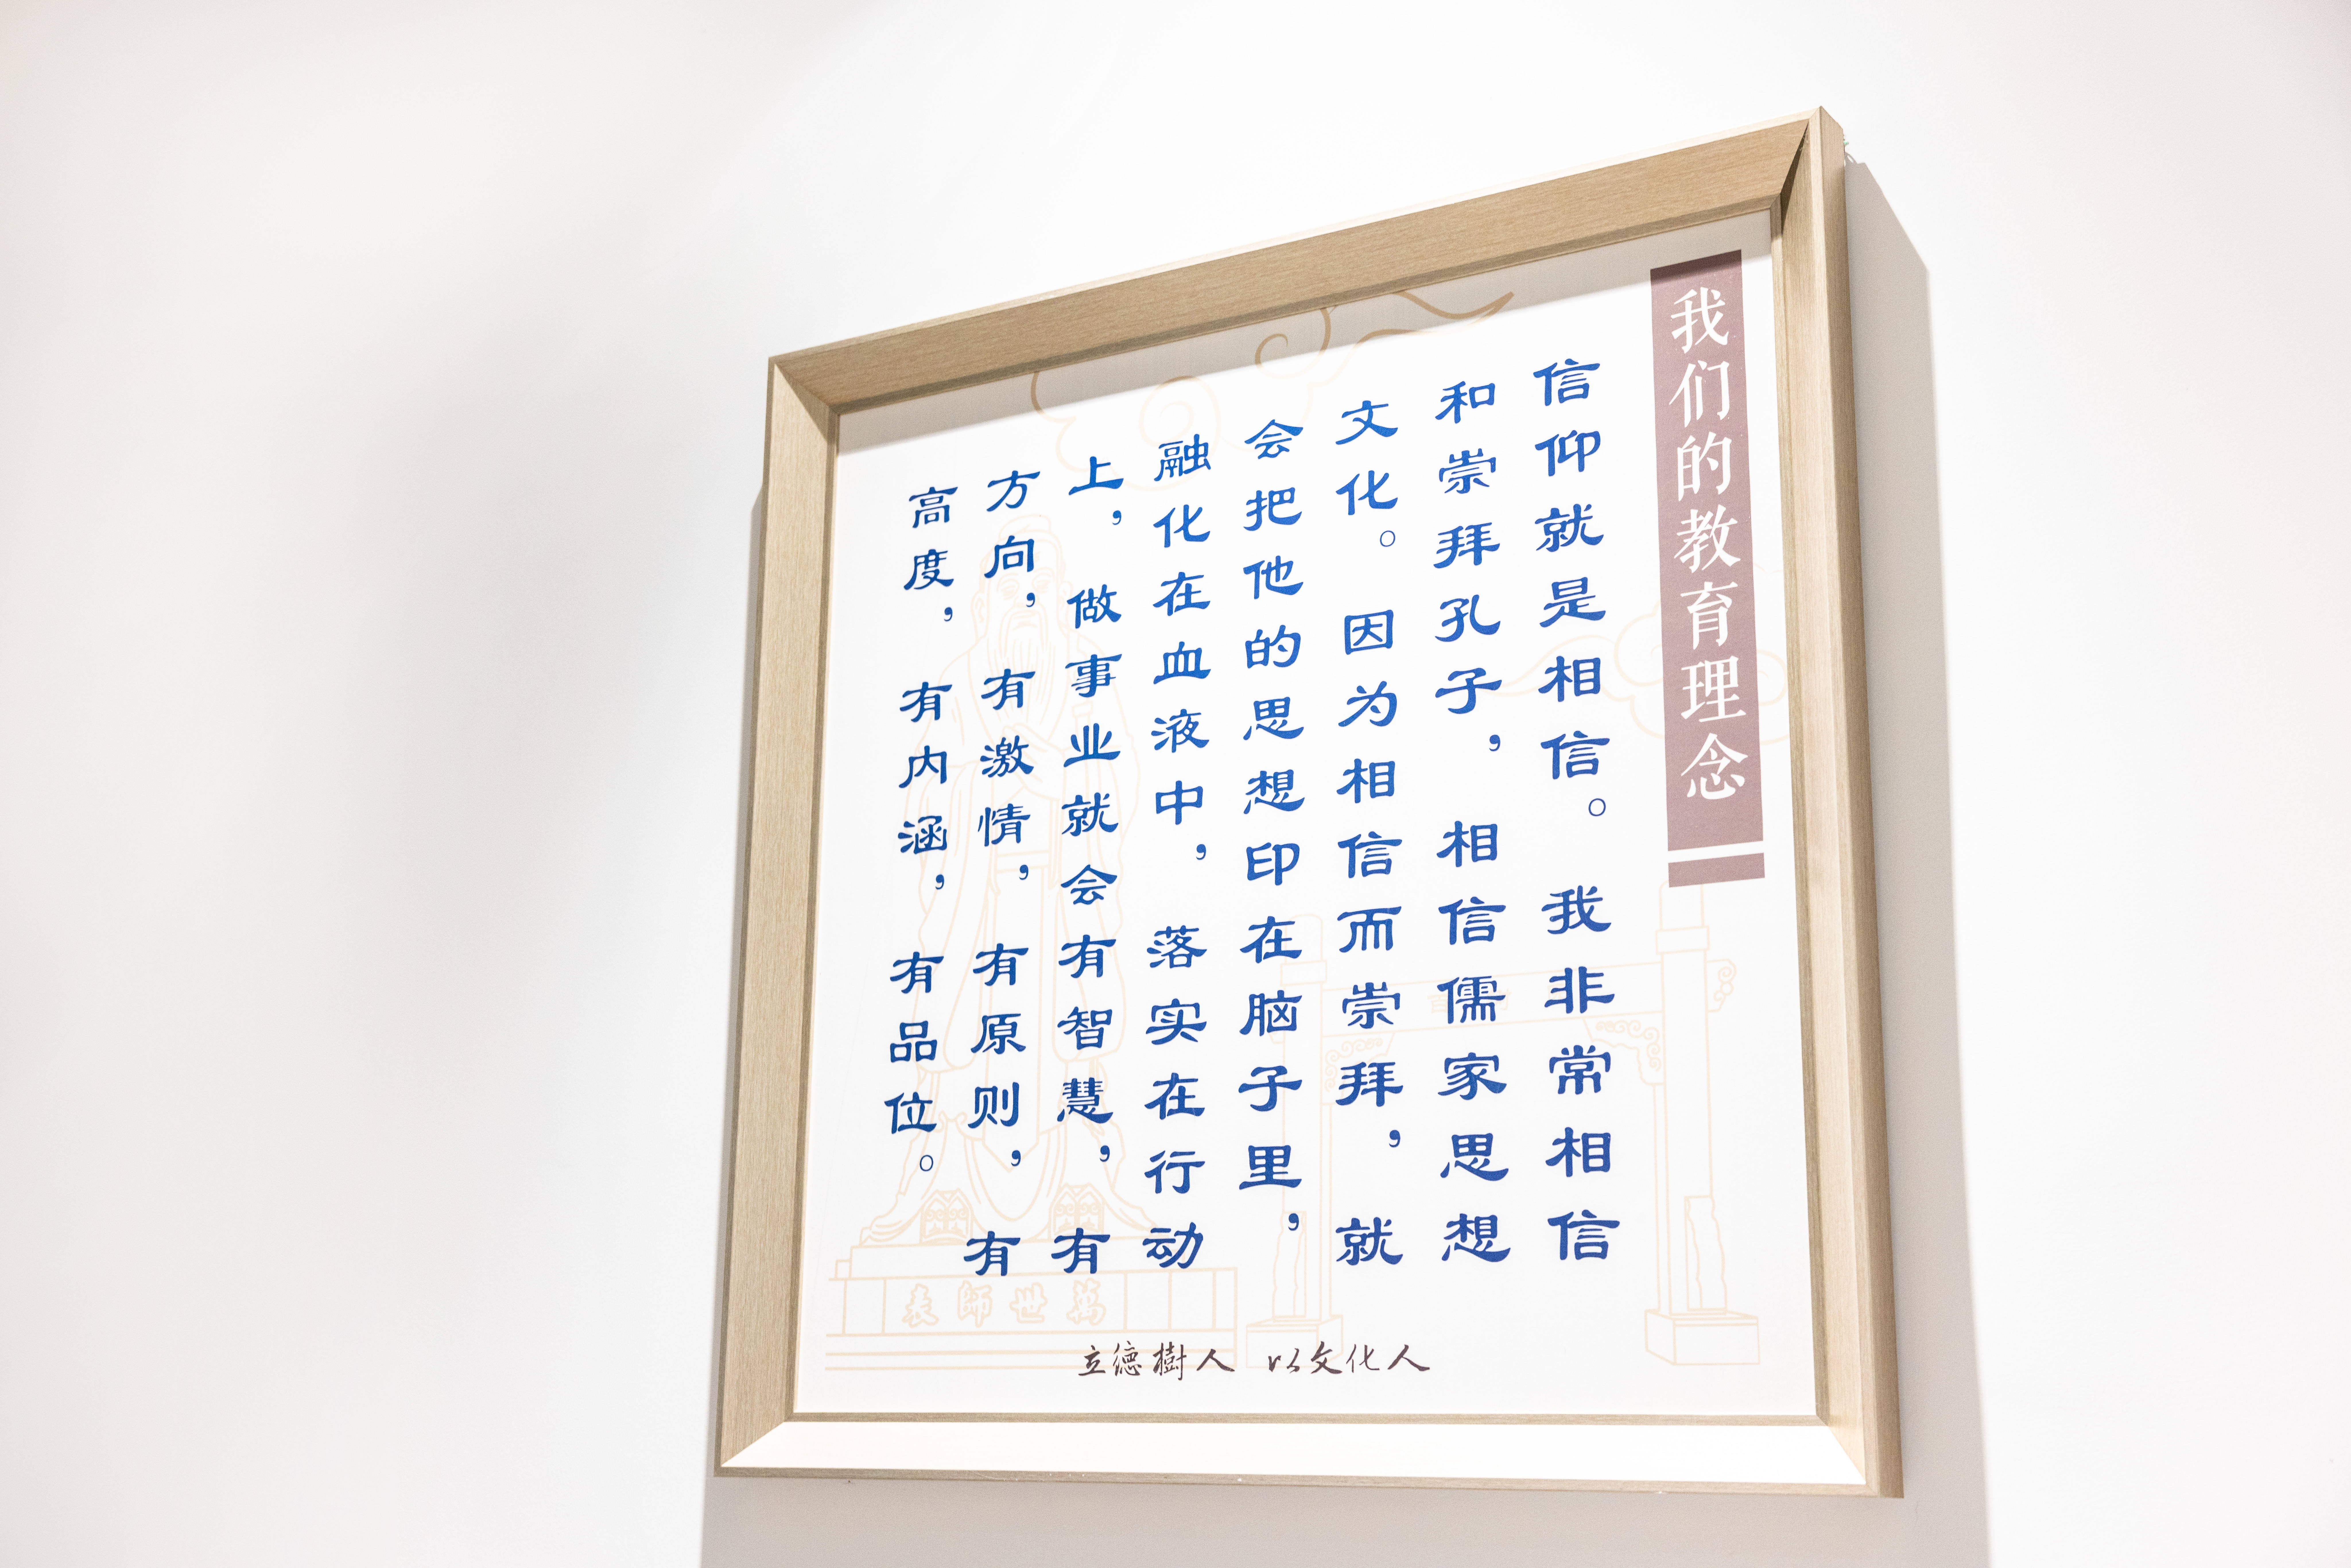 我们的教育理念
信仰就是相信。我非常相信
和崇拜孔子，相信儒家思想
文化。因为相信而崇拜，就
会把他的思想印在脑子里，
融化在血液中，落实在行动
上，做事业就会有智慧，有
方向，有激情，有原则，有
高度，有内涵，有品位。
萬世師表
立德樹人 以文化人